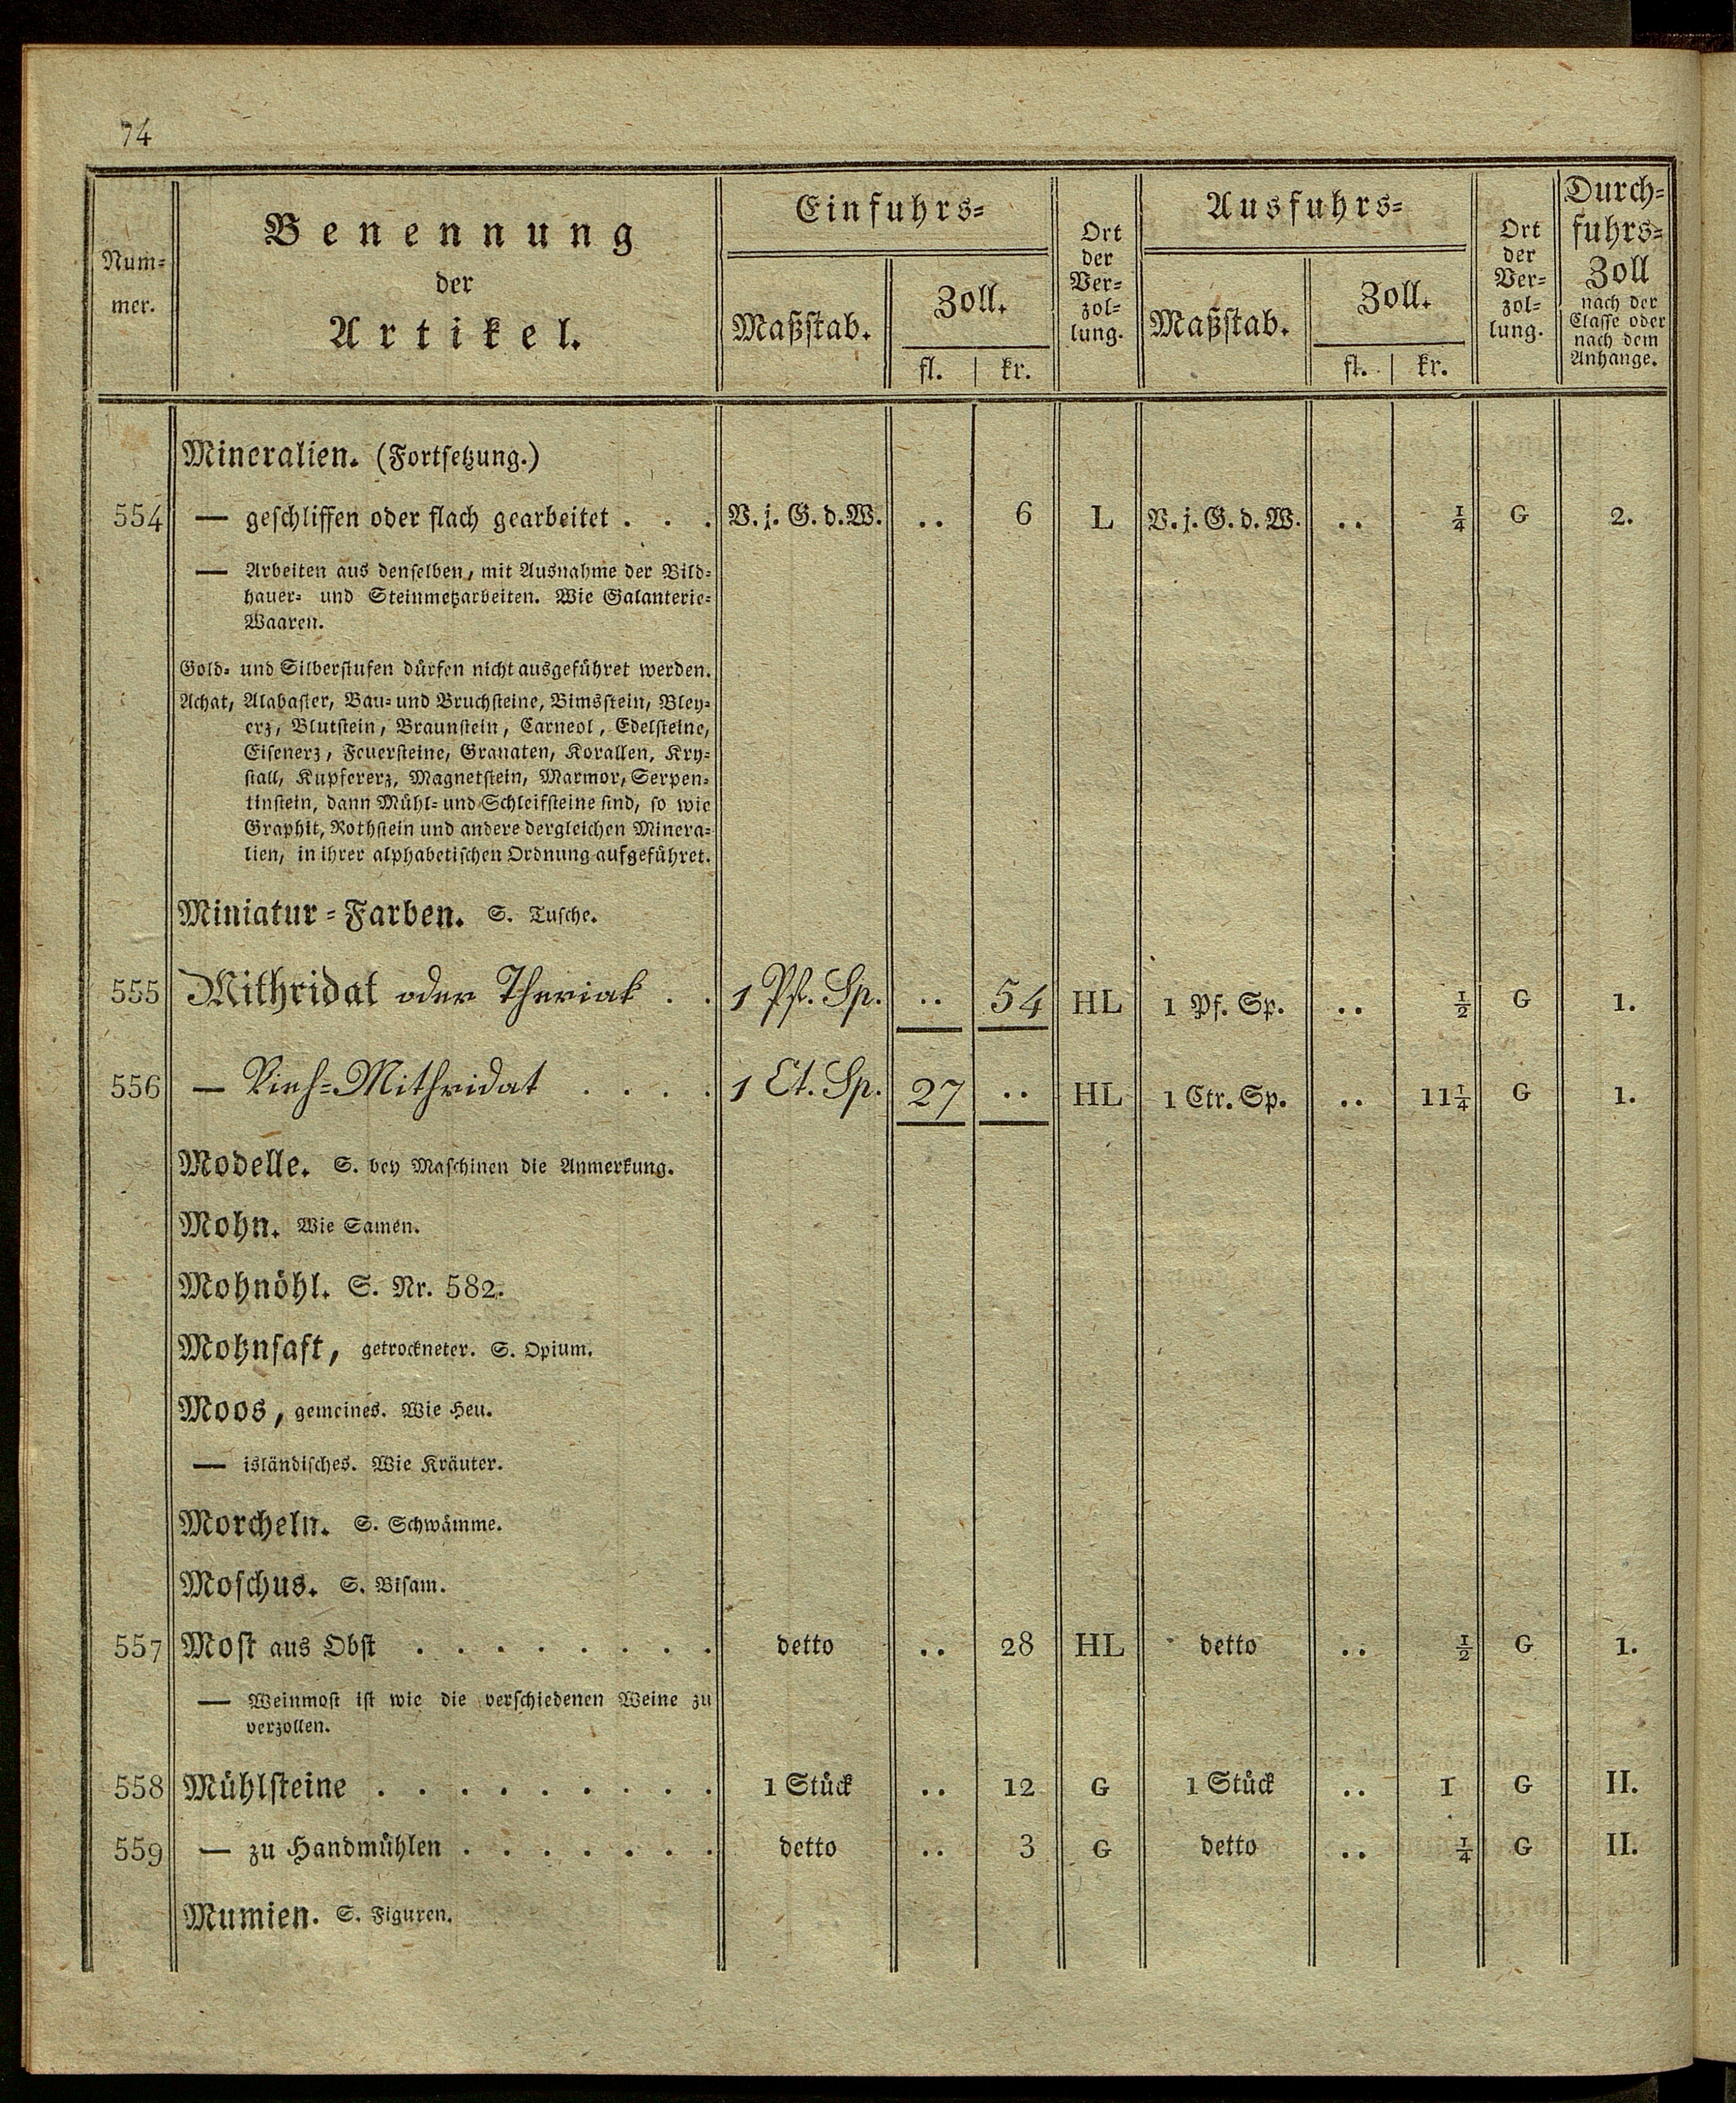 74
Nummer.
Benennung
der
Artikel.
Einfuhrs=
Maßstab.
Zoll.
fl. | kr.
Ort
der
Ver=
zol=
lung.
Ausfuhrs=
Maßstab.
Zoll.
fl. | kr.
Ort
der
Ver=
zol=
lung.
Durch=
fuhrs=
Zoll
nach der
Classe oder
nach dem
Anhange.
Mineralien. (Fortsetzung.)
554 — geschliffen oder flach gearbeitet . . . V. j. G. d. W. .. 6 L V. j. G. d. W. .. ¼ G 2.
— Arbeiten aus denselben, mit Ausnahme der Bild=
hauer= und Steinmetzarbeiten. Wie Galanterie=
Waaren.
Gold= und Silberstufen dürfen nicht ausgeführet werden.
Achat, Alabaster, Bau= und Bruchsteine, Bimsstein, Bley=
erz, Blutstein, Braunstein, Carneol, Edelsteine,
Eisenerz, Feuersteine, Granaten, Korallen, Kry=
stall, Kupfererz, Magnetstein, Marmor, Serpen=
tinstein, dann Mühl= und Schleifsteine sind, so wie
Graphit, Rothstein und andere dergleichen Minera=
lien, in ihrer alphabetischen Ordnung aufgeführet.
Miniatur=Farben. S. Tusche.
555 Mithridat oder Theriak . . 1 Pf. Sp. .. 54 HL 1 Pf. Sp. .. ½ G 1.
556 — Vieh=Mithridat . . . . 1 Ct. Sp. 27 .. HL 1 Ctr. Sp. .. 11¼ G 1.
Modelle. S. bey Maschinen die Anmerkung.
Mohn. Wie Samen.
Mohnöhl. S. Nr. 582.
Mohnsaft, getrockneter. S. Opium.
Moos, gemeines. Wie Heu.
— isländisches. Wie Kräuter.
Morcheln. S. Schwämme.
Moschus. S. Bisam.
557 Most aus Obst . . . . . . . . detto .. 28 HL detto .. ½ G 1.
— Weinmost ist wie die verschiedenen Weine zu
verzollen.
558 Mühlsteine . . . . . . . . . 1 Stück .. 12 G 1 Stück .. 1 G II.
559 — zu Handmühlen . . . . . . . detto .. 3 G detto .. ¼ G II.
Mumien. S. Figuren.